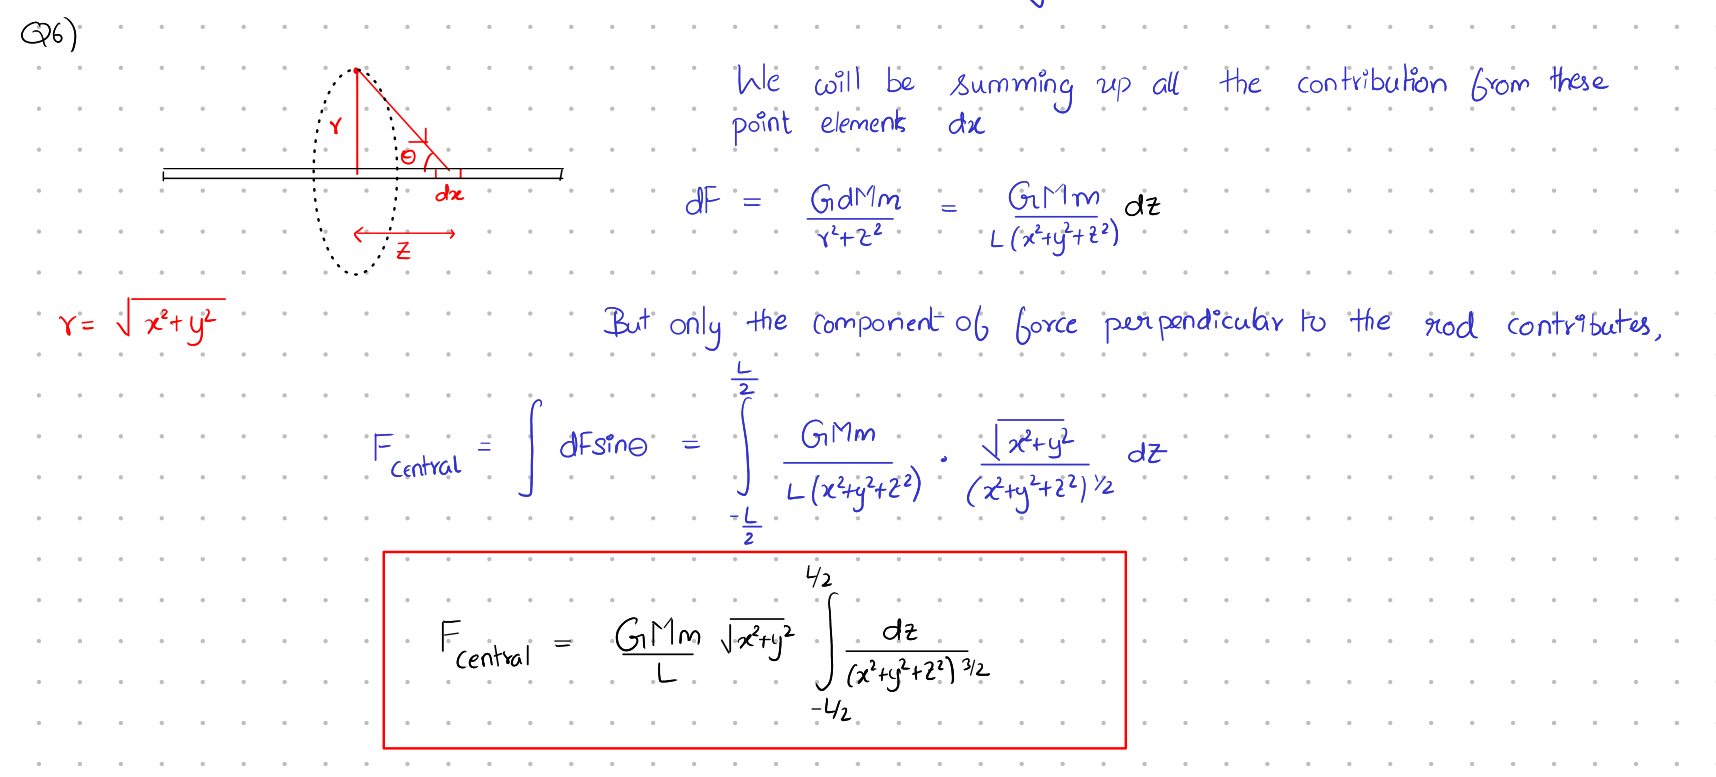 Q6)
We will be summing up all the contribution from these
point elements dx
r
θ
dx
z
dF = GdMm / r²+z² = GMm / L(x²+y²+z²) dz
r = √x²+y²
But only the component of force perpendicular to the rod contributes,
F central = ∫ dFsinθ = ∫ -L/2 L/2 GMm / L(x²+y²+z²) · √x²+y² / (x²+y²+z²)^1/2 dz
F central = GMm / L √x²+y² ∫ -L/2 L/2 dz / (x²+y²+z²)^3/2